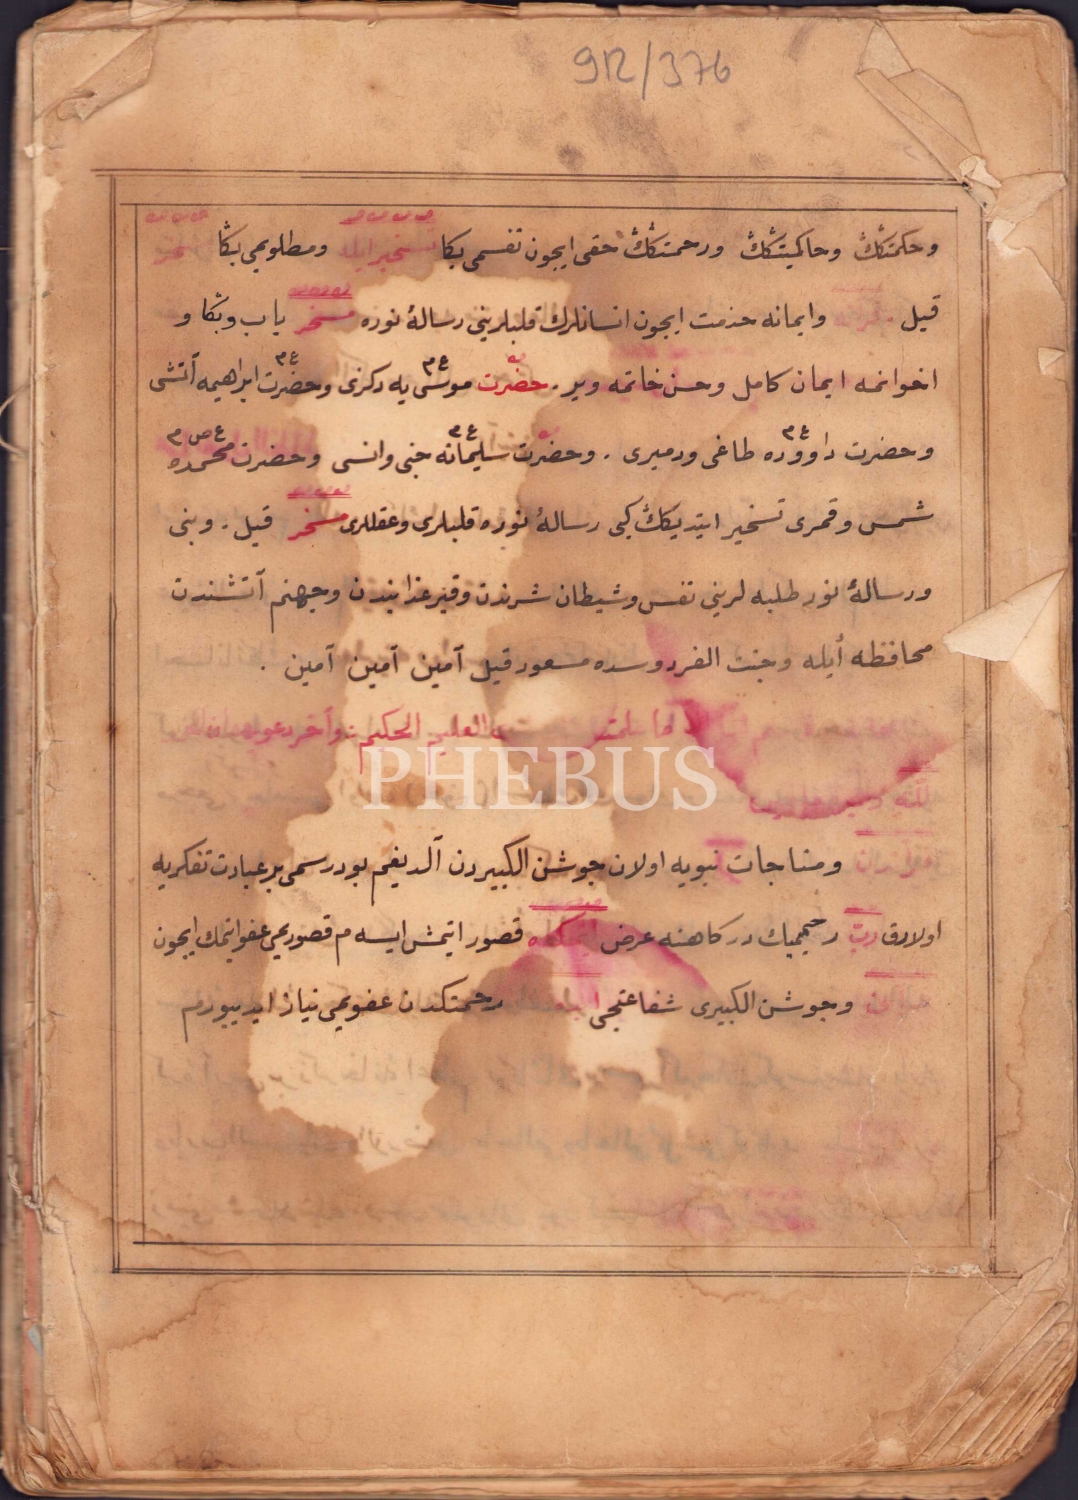 912/376
وحكمتڭڭ وحاكميتڭڭ ورحمتڭڭ حقى ايچون نفسمى بڭا تسخير ايله ومطلوبمى بڭا مسخر
قيل . وايمانه خدمت ايچون انسانلرك قلبلرينى رسالهٔ نوره مسخر ياپ وبڭا و
اخوانمه ايمان كامل وحسن خاتمه وير . حضرت موسى يه دكزى وحضرت ابراهيمه آتشى
وحضرت داووده طاغى ودميرى . وحضرت سليمانه جنى وانسى وحضرت محمده
شمس وقمرى تسخير ايتديكڭ كبى رسالهٔ نوره قلبلرى وعقللرى مسخر قيل . وبنى
ورسالهٔ نور طلبه لرينى نفس وشيطان شرندن وقبر عذابندن وجهنم آتشندن
محافظه ايله وجنت الفردوسده مسعود قيل آمين آمين آمين .
العليم الحكيم وآخر دعواهم ان
PHEBUS
ومناجات نبويه اولان جوشن الكبيردن آلديغم بو درسمى بر عبادت تفكريه
اولارق رب رحيميمك دركاهنه عرض ايتمكده قصور ايتمش ايسه م قصوريمى عفو ايتمك ايچون
وجوشن الكبيرى شفاعتجى رحمتكدن عفويمى نياز ايدييورم